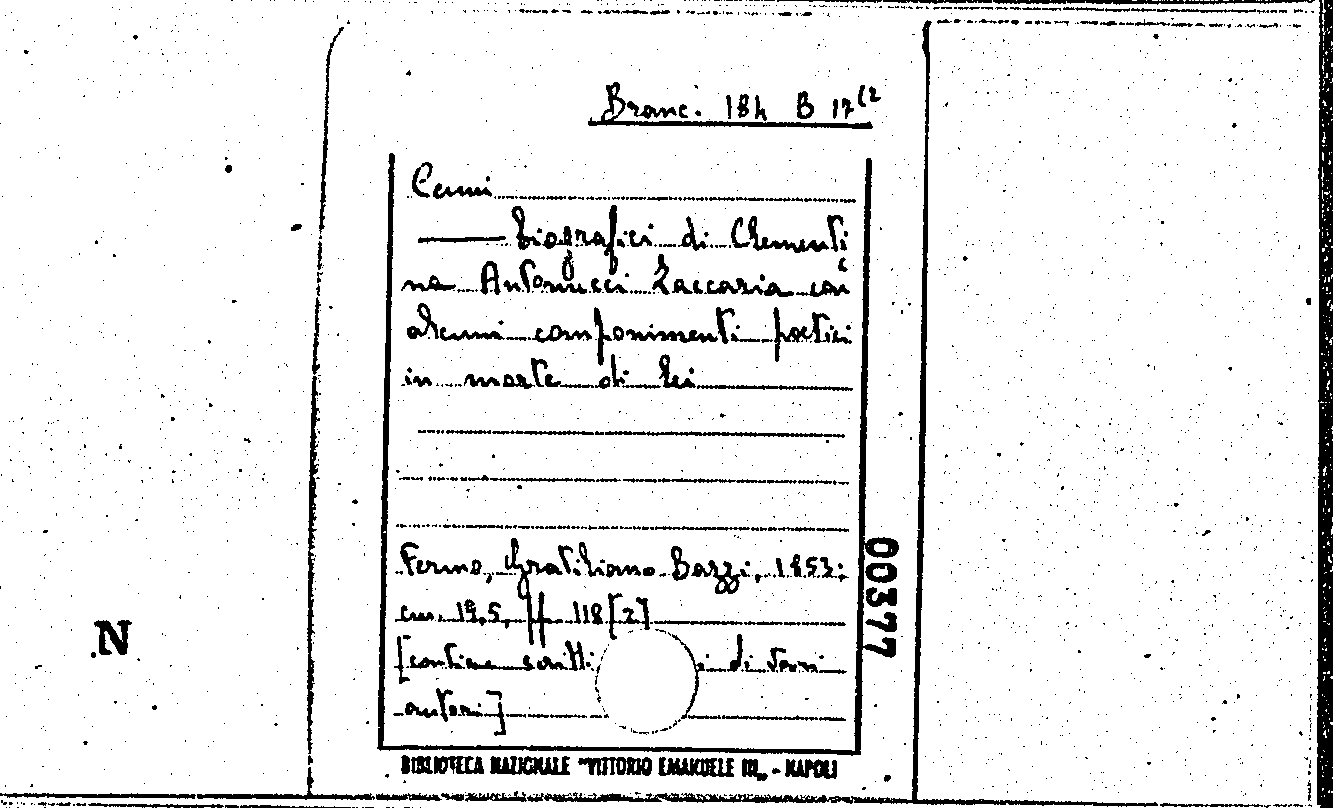 Branc. 18h B 17(2
Cenni
biografici di Clementi
na Antonucci Zaccaria con
alcuni componimenti poetici
in morte di lei
Fermo, Gratiliano Bazzi, 1853;
cm. 19,5, pp. 118 [2]
[contiene scritti i di varii
autori]
00377
N
BIBLIOTECA NAZIONALE "VITTORIO EMANUELE III„ - NAPOLI